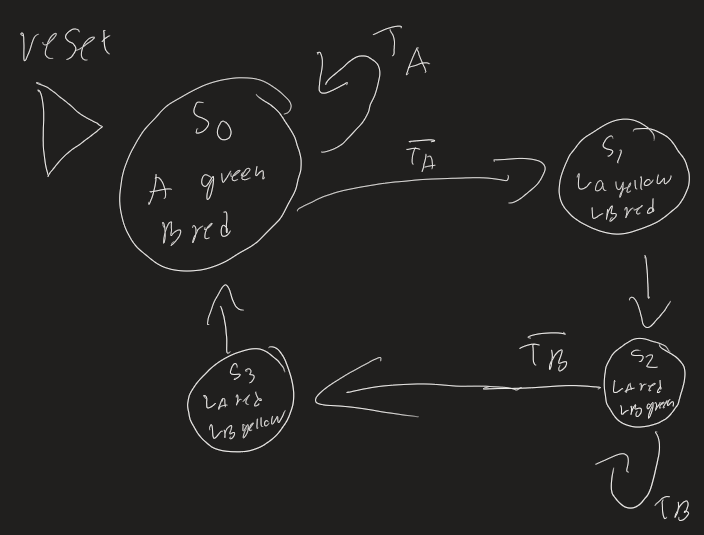 reset
T_A
S_0
A green
B red
T̅_A̅
S_1
La yellow
LB red
T̅_B̅
S2
LA red
LB green
S3
LA red
LB yellow
T_B